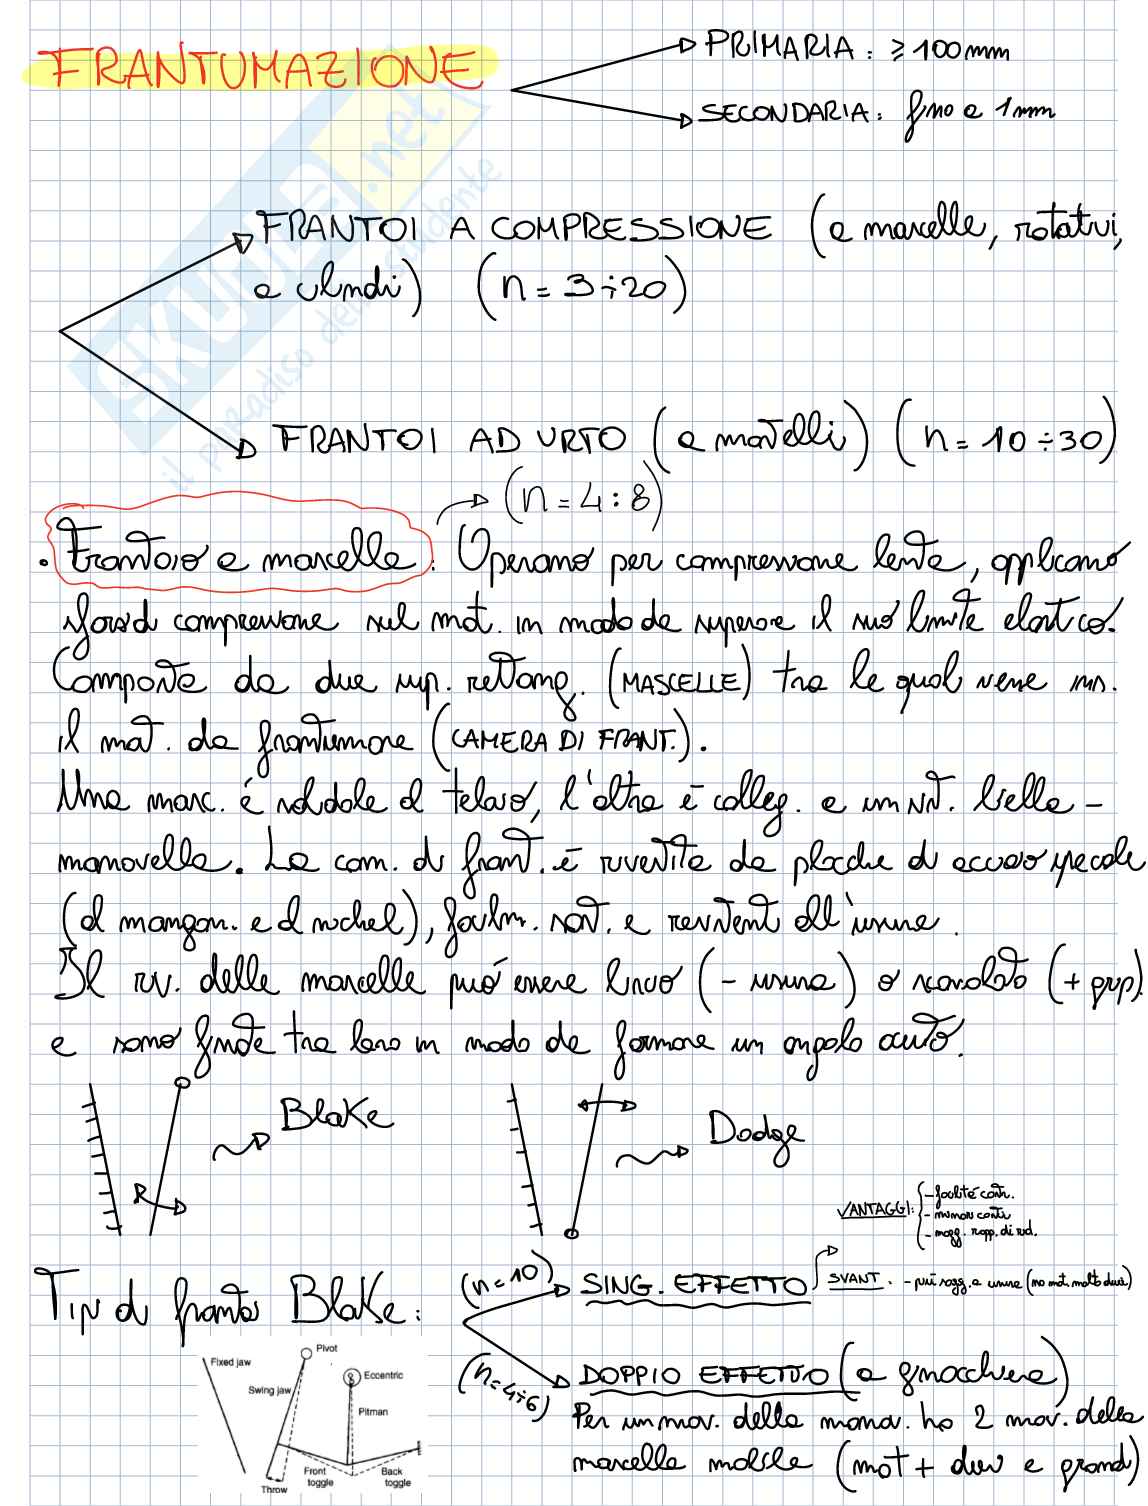 FRANTUMAZIONE
PRIMARIA: ≥ 100 mm
SECONDARIA: fino a 1 mm
SKUOLA.net
il paradiso dello studente
FRANTOI A COMPRESSIONE (a mascelle, rotativi,
a cilindri) (n = 3÷20)
FRANTOI AD URTO (a martelli) (n = 10÷30)
(n = 4:8)
• Frantoio a mascelle: Operano per compressione lenta, applicano
sforzi di compressione sul mat. in modo da superare il suo limite elastico.
Composte da due sup. rettang. (MASCELLE) tra le quali viene ins.
il mat. da frantumare (CAMERA DI FRANT.).
Una masc. é solidale al telaio, l'altra é colleg. a un sist. biella-
manovella. La cam. di frant. é rivestita da placche di acciaio speciale
(al mangan. e al nichel), facilm. sost. e resistenti all'usura.
Il riv. delle mascelle puó essere liscio (- usura) o scanalato (+ grip)
e sono giunte tra loro in modo da formare un angolo acuto.
Blake
Dodge
VANTAGGI:
- facilité costr.
- minori costi
- magg. rapp. di rid.
Tipi di frantoi Blake:
(n=10) SING. EFFETTO
SVANT. - più sogg. a usura (no mat. molto duri)
(n=4÷6) DOPPIO EFFETTO (a ginocchiera)
Per un mov. della manov. ho 2 mov. della
mascella mobile (mat + duri e grandi)
Fixed jaw
Pivot
Swing jaw
Eccentric
Pitman
Front toggle
Back toggle
Throw